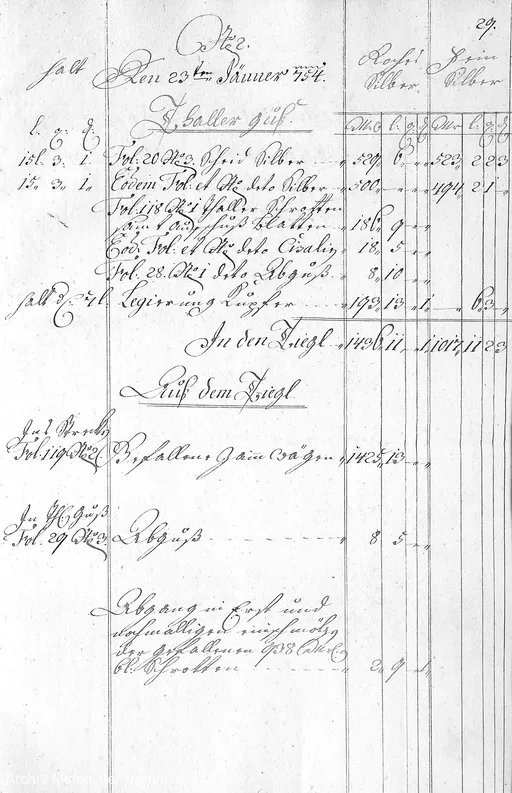 29.
No 2.
halt Den 23ten Jänner 754.
Roches Silber. Fein Silber
Thaller Guß.
l. q. d. Mr. l. q. d. Mr. l. q. d.
15 l. 3. 1. Fol. 20 No 3. Scheid Silber 529 6 523 2 2 3
15 3 1 Eodem Fol. et No deto Silber 500 494 2 1
Fol. 118 No 1 Thaller Schrotten
samt Außschuß Blatten 186 9
Eod. Fol. et No deto Cisalien 18 5
Fol. 28. No 1 deto Abguß 8 10
halt Legierung Kupfer 193 13 1 6 3
In den Tiegl 1436 11 1 1017 11 2 3
Auß dem Tiegl
Ins Streck
Fol. 119 No 2. Befallene Zain Wägen 1425 13
In Th. Guß
Fol. 29 No 3. Abguß 8 5
Abgang in Erst und
nochmalligen einschmölz
der gefallenen 938
Schrotten 2 9 1